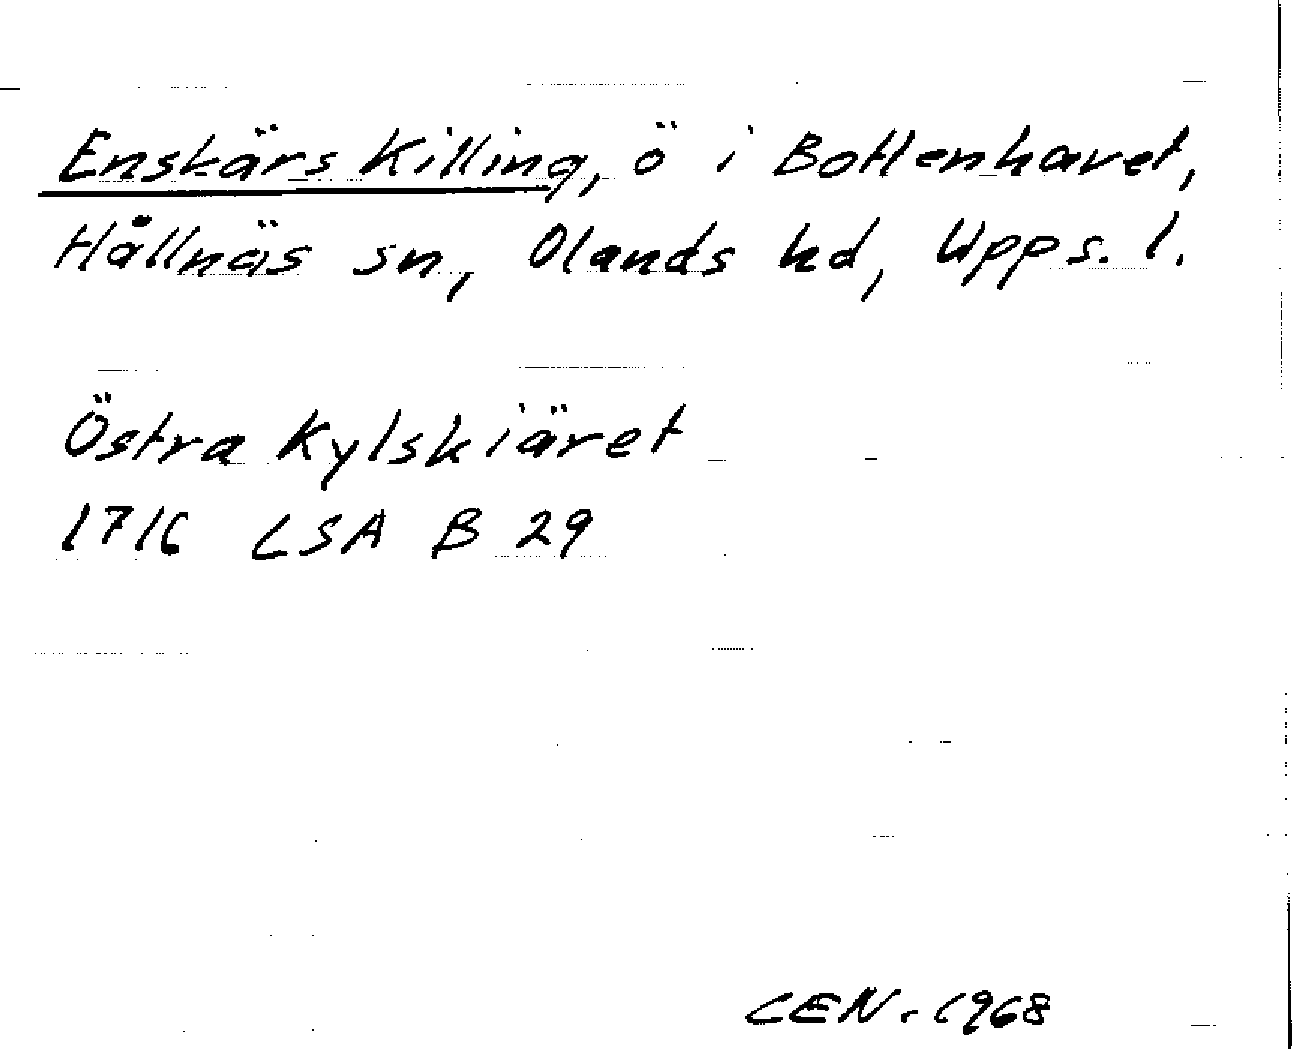 Enskärs Killing, ö i Bottenhavet,
Hållnäs sn, Olands hd, Upps. l.
Östra Kylskiäret
1716 LSA B 29
CEN. 1968